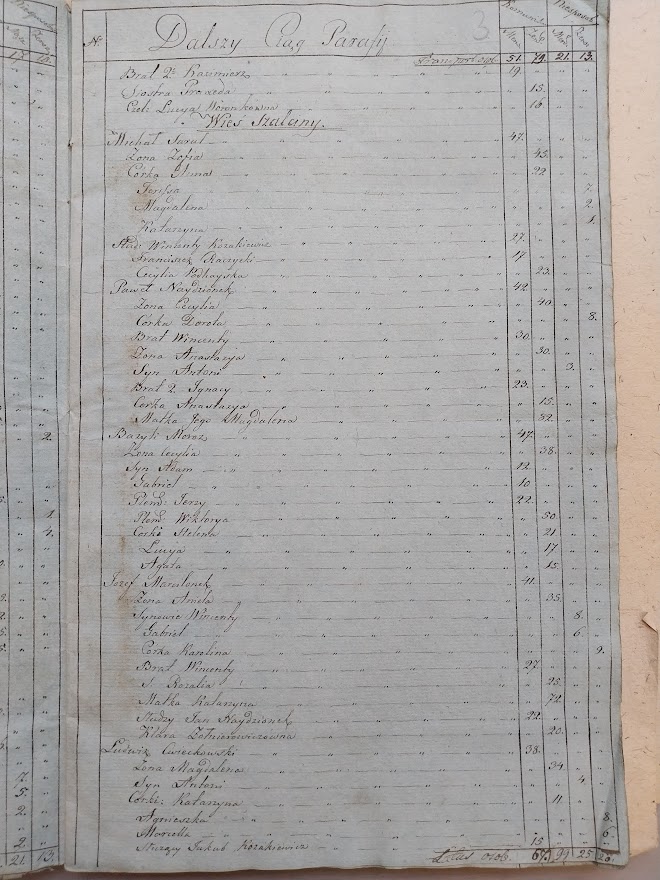 N. Dalszy Ciąg Parafij
3
Transport osob 51. 79. 21. 13.
Brat 2. Kazimierz 19.
Siostra Prozeda 15.
Czel: Lucyja Woronkowna 16
Wieś Szalany.
Michał Surut 47.
Zona Zofia 45.
Córka Anna 22
Teressa 7.
Magdalena 2.
Katarzyna 1.
Służ: Wincenty Kozakiewicz 27.
Franciszek Raczycki 17
Cecylia Podhayska 23.
Paweł Naydzionek 42.
Zona Cecylia 40.
Córka Dorota 8.
Brat Wincenty 30.
Zona Anastazya 30.
Syn Antoni 3.
Brat 2. Ignacy 23.
Córka Anastazya 15.
Matka Jego Magdalena 82.
Bazyli Moroz 47.
Zona Cecylia 38.
Syn Adam 12.
Gabriel 10
Plem: Jerzy 22.
Plem: Wiktorya 50.
Córka Helena 21
Lucya 17
Agata 15.
Jozef Marulonek 41.
Zona Aniela 35.
Synowie Wincenty 8.
Gabriel 6.
Córka Karolina 9.
Brat Wincenty 27.
Rozalia 25.
Matka Katarzyna 72.
Słudzy Jan Naydzionek 22.
Klara Zołnierowiczowna 20.
Ludwik Cwieckowski 38.
Zona Magdalena 34
Syn Antoni 4.
Córki: Katarzyna 11
Agnieszka 8.
Marcella 6.
Służący Jakub Kozakiewicz 15
Latus osob. 67. 99. 25. 20.